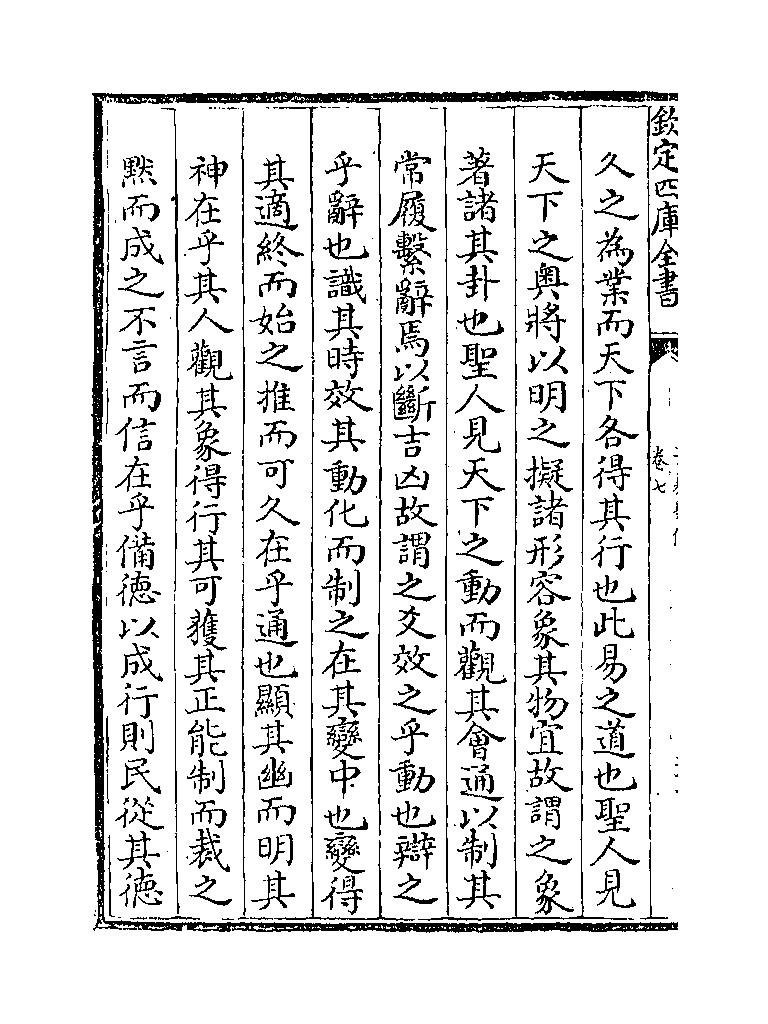 欽定四庫全書
卷七
久之為業而天下各得其行也此易之道也聖人見
天下之奥將以明之擬諸形容象其物宜故謂之象
著諸其卦也聖人見天下之動而觀其會通以制其
常履繫辭焉以斷吉凶故謂之爻效之乎動也辯之
乎辭也識其時效其動化而制之在其變中也變得
其適終而始之推而可久在乎通也顯其幽而明其
神在乎其人觀其象得行其可獲其正能制而裁之
黙而成之不言而信在乎備德以成行則民從其德